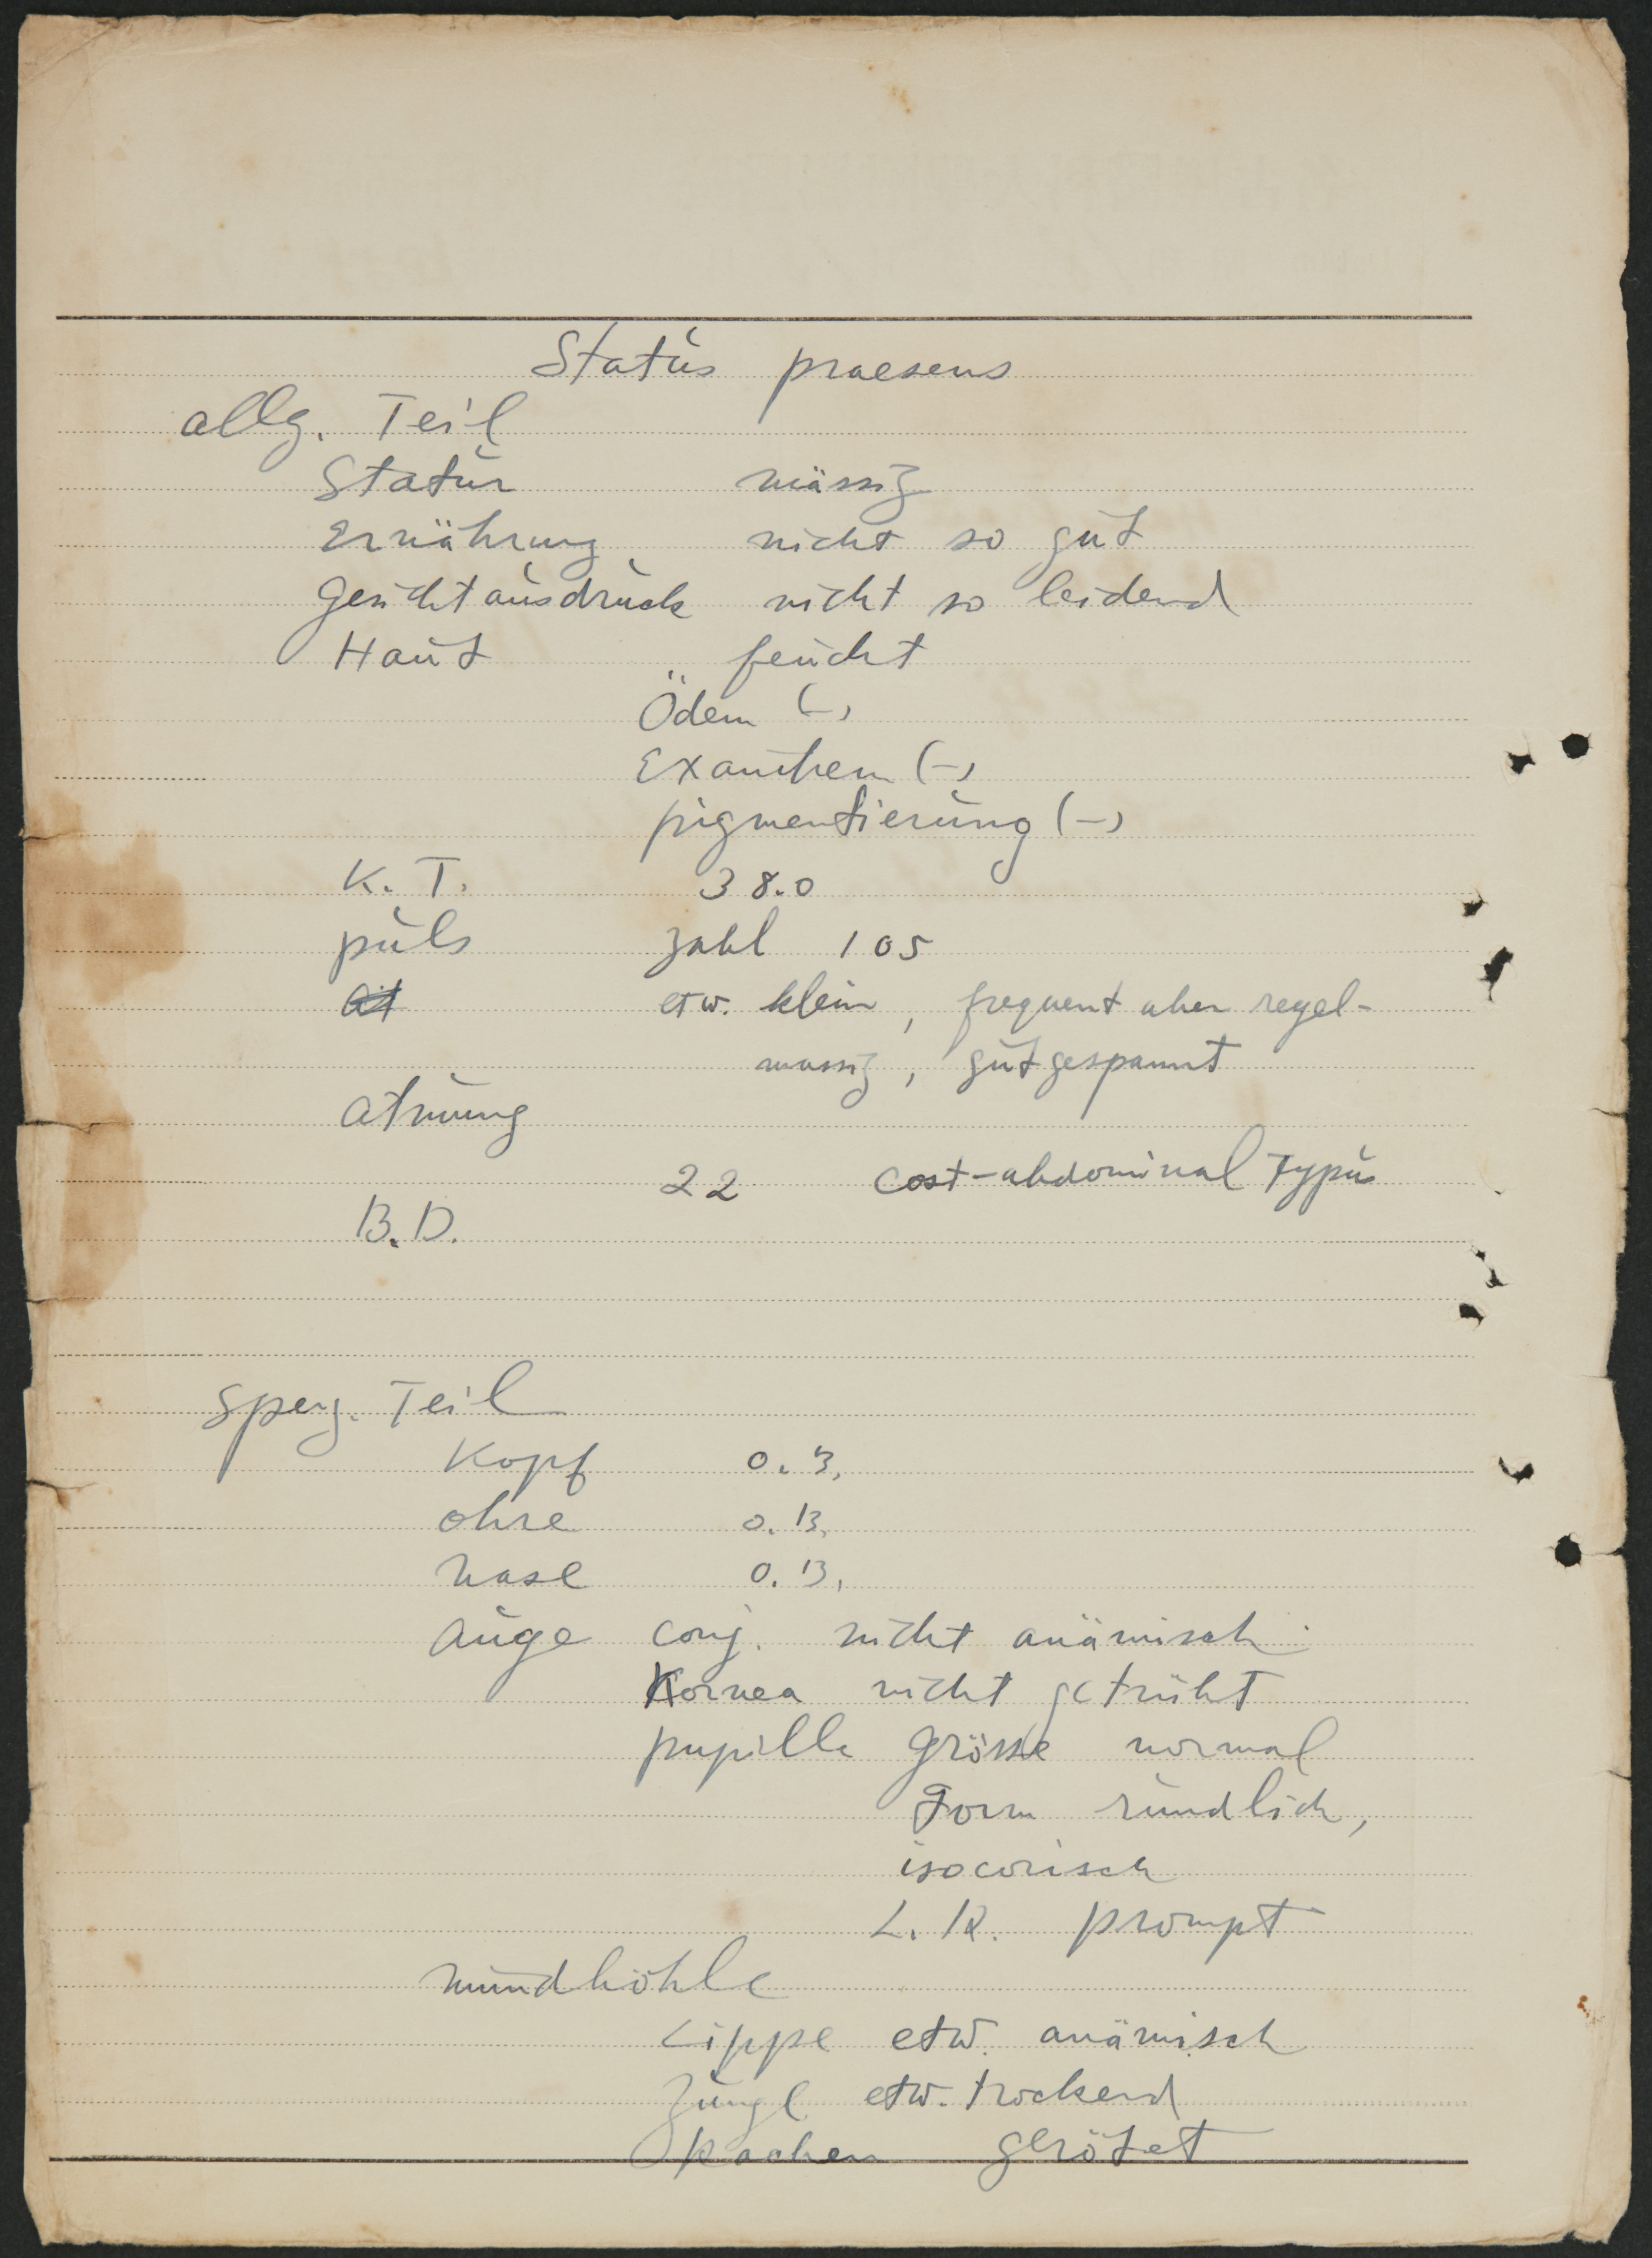 Status praesens
allg. Teil
Statur mässig
Ernährung nicht so gut
Gesichtausdruck nicht so leidend
Haut feucht
Ödem (-)
Exanthem (-)
pigmentierung (-)
K. T. 38.0
puls zahl 105
At etw. klein, frequent aber regel-
massig, gut gespannt
Atmung
22 cost-abdominal Typus
B.D.
Spez. Teil
Kopf o.B.
ohre o.B.
Nase o.B.
Auge conj. nicht anämisch.
Kornea nicht getrübt
pupille grösse normal
Form rundlich,
isocorisch
L. R. prompt
Mundhöhle
Lippe etw. anämisch
Zunge etw. trockend
Rachen gerötet